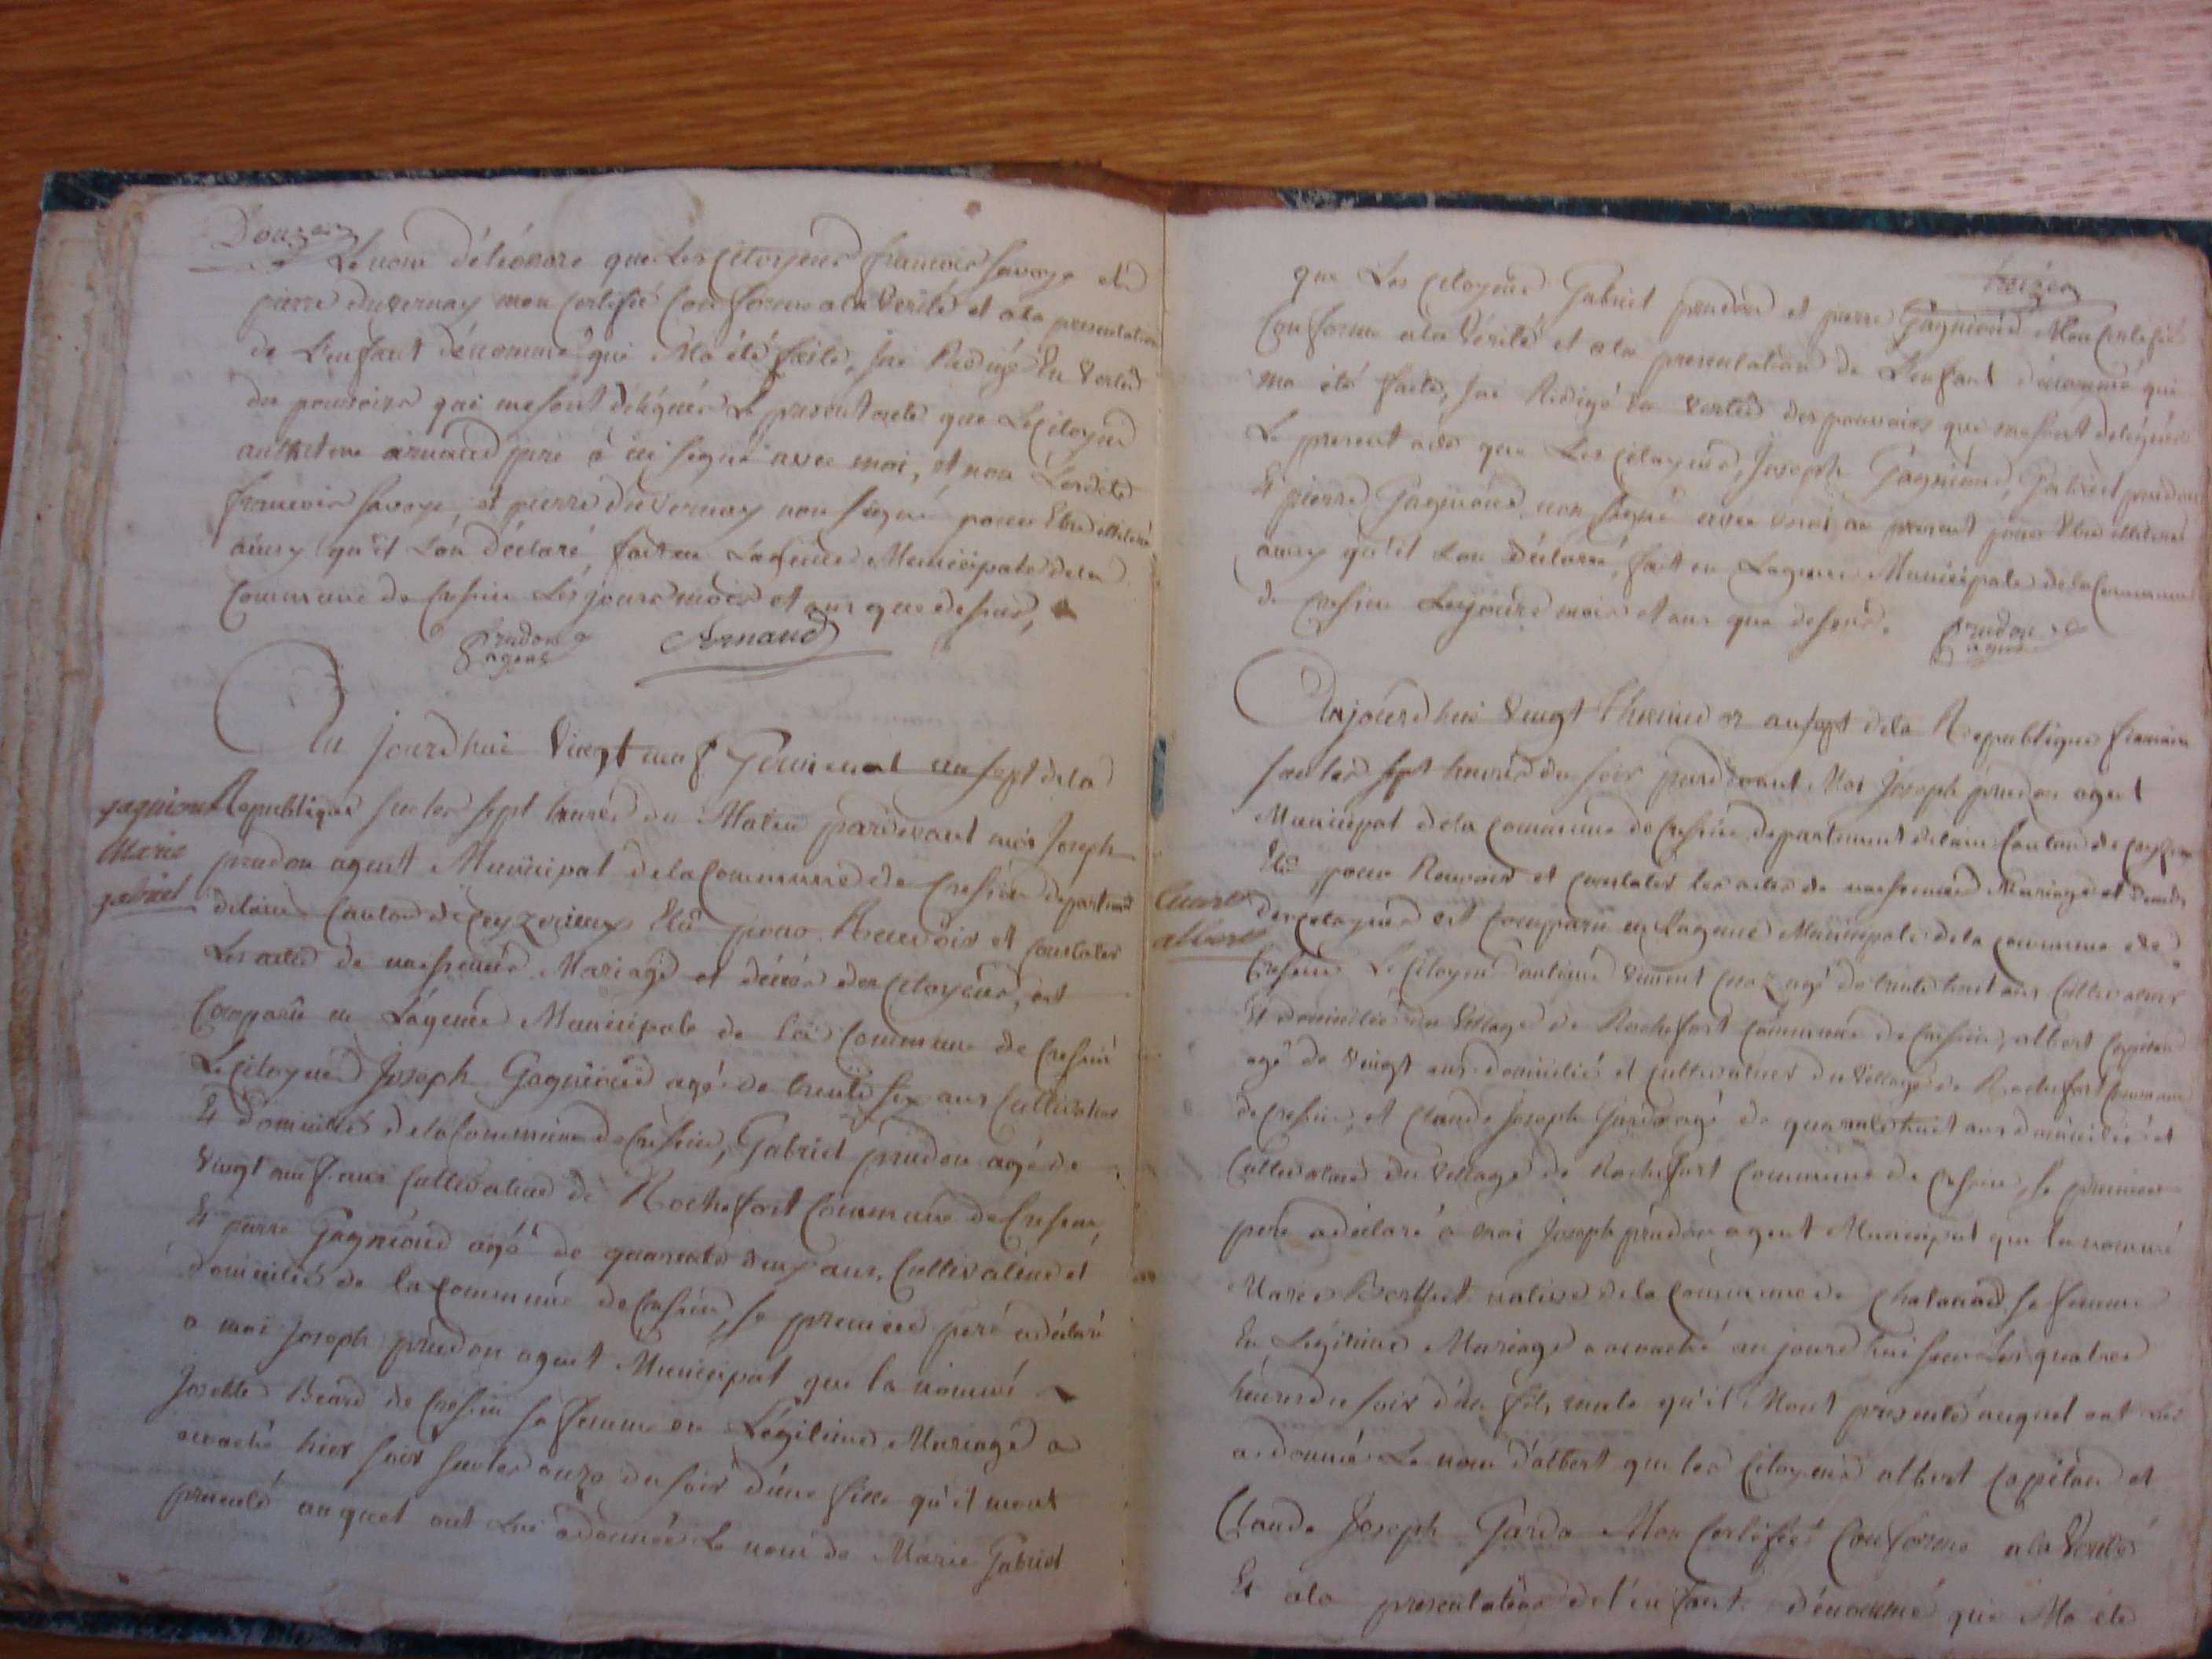 Douze
Le nom d'éléonore que les Citoyens francois Savoye et
pierre duvernay mon Certifié Conforme a la Vérité et a la presentation
de L'enfant dénommé qui Ma été faite, jai Redigé En Vertu
des pouvoirs qui me sont délégués Le present acte que Le Citoyen
anthelme arnaud pere a ici signé avec moi, et non Lesdits
francois Savoye, et pierre duvernay non signé pour Etre illitéré
ainsy qu'il L'on déclaré, fait en L'agence Municipale de la
Commune de Cressin Les jours mois et an que dessus,
prudon agent Arnaud
Au jourdhui Vingt neuf Germinal an sept de la
gagnioud Republique sur les sept heures du Matin pardevant moi Joseph
Marie prudon agent Municipal de la Commune de Cressin departement
gabriel delain Canton de Ceyzerieux Elu pour Recevoir et Constater
Les actes de naissance Mariage et décés des Citoyens, est
Comparu en L'agence Municipale de la Commune de Cressin
Le Citoyen Joseph Gagnioud agé de trente six ans Cultivateur
Et domicilié de la Commune de Cressin, Gabriel prudon agé de
Vingt neuf ans Cultivateur de Rochefort Commune de Cressin,
Et pierre Gagnioud agé de quarante deux ans, Cultivateur et
domicilié de la Commune de Cressin, le premier pere a déclaré
a moi Joseph prudon agent Municipal que la nommé
Josette Beard de Cressin sa femme en Légitime Mariage a
acouché hier soir sur les onze du soir d'une fille qu'il mont
presenté auquel ont Lui a donnée Le nom de Marie Gabriel
treize
que Les Citoyens Gabriel prudon et pierre Gagnioud Mon Certifié
Conforme a la Vérité et a la presentation de L'enfant dénommé qui
ma été faite, jai Redigé En Vertu des pouvoirs qui me sont délégués
Le present acte que Les Citoyens, Joseph Gagnioud, Gabriel prudon
Et pierre Gagnioud non signé avec moi au present pour Etre illitéré
ainsy qu'il L'on déclaré, fait en L'agence Municipale de la Commune
de Cressin Les jours mois et an que dessus. prudon agent
Aujourdhui Vingt thermidor an sept de la Republique francaise
sur les sept heures du soir pardevant Moi Joseph prudon agent
Municipal de la Commune de Cressin departement delain Canton de Ceyzerieux
Elu pour Recevoir et Constater les actes de naissance Mariage et décés
albert des Citoyens est Comparu en L'agence Municipale de la Commune de
Cressin Le Citoyen antoine Vincent Cuaz agé de trente huit ans Cultivateur
Et domicilié du Village de Rochefort Commune de Cressin, albert Capitan
agé de Vingt ans domicilié et Cultivateur du Village de Rochefort Commune
de Cressin, et Claude Joseph Garda agé de quarante huit ans domicilié et
Cultivateur du Village de Rochefort Commune de Cressin, le premier
pere a déclaré a moi Joseph prudon agent Municipal que la nommé
Marie Berthet native de la Commune de Chatanod sa femme
En Légitime Mariage a acouché au jourd'hui sur Les quatre
heures du soir d'un fils male qu'il Mont presenté auquel ont Lui
a donné Le nom d'albert que les Citoyens albert Capitan et
Claude Joseph Garda Mon Certifié Conforme a la Vérité
Et a la presentation de L'enfant dénommé qui Ma été